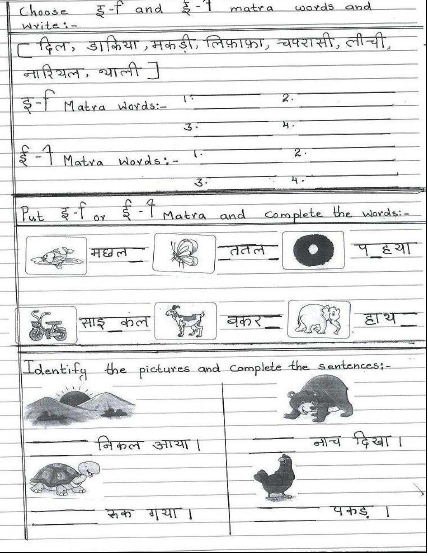 Choose इ-ि and ई-ी matra words and
write:-
[ दिल, डाकिया, मकड़ी, लिफ़ाफ़ा, चपरासी, लीची,
नारियल, थाली ]
इ-ि Matra words:- 1. ______ 2. ______
3. ______ 4. ______
ई-ी Matra words:- 1. ______ 2. ______
3. ______ 4. ______
Put इ-ि or ई-ी Matra and complete the words:-
मछल__ तितल__ प_हया
साइ_कल बकर__ हाथ__
Identify the pictures and complete the sentences:-
______ निकल आया। ______ नाच दिखा।
______ रुक गया। ______ पकड़।